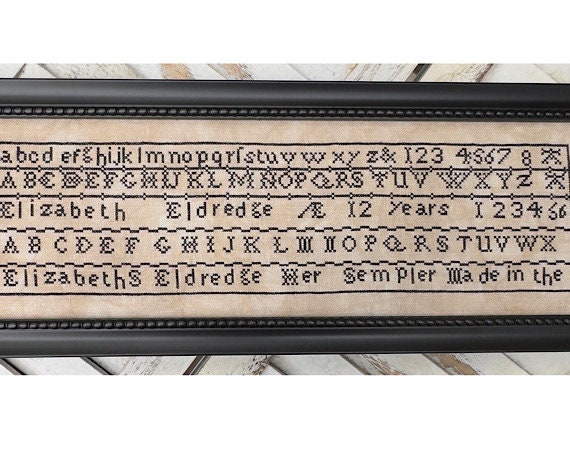 abcd efghijklmnopqrſstuvwxyz& 123 4567 8
ABCDEFGHIJKLMNOPQRSTUVWXYZ
Elizabeth Eldredge Æ 12 Years 123456
ABCDEFGHIJKLMNOPQRSTUVWX
ElizabethS Eldredge Her Sempler Made in the